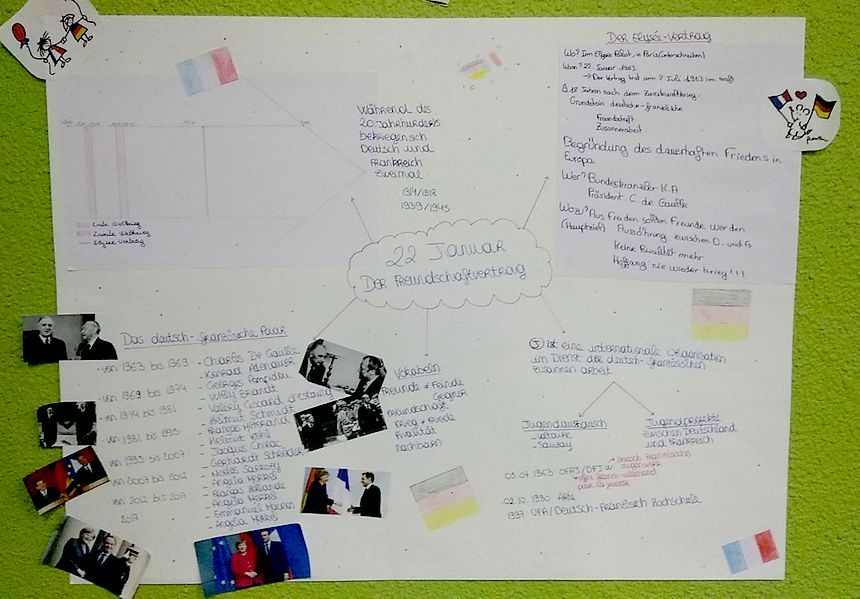 Der Elyseé-Vertrag
Wo? Im Elyseé Palast, in Paris (unterschreiben)
Wann? 22 Januar 1963
→ Der Vertrag trat am 2 Juli 1963 im kraft
18 Jahren nach dem Zweiteweltkrieg.
Grundstein deutsche-französische
Zusammenarbeit
Begründung des dauerhaften Friedens in
Europa
Wer? Bundeskanzler K.A
Präsident C. de Gaulle
Wozu? Aus Feinden sollten Freunde werden
(Hauptziel) Aussöhnung zwischen D. und
Keine Rivalität mehr
Hoffnung: nie wieder krieg!!!
Während des
20 Jahrhunderts
bekriegen sich
Deutsch und
Frankreich
zweimal
1914/1918
1939/1945
Erste Weltkrieg
Zweite Weltkrieg
Elysee Vertrag
22 Januar
Der Freundschaftvertrag
Das deutsch-französische Paar
- von 1963 bis 1969
- von 1969 bis 1974
- von 1974 bis 1981
- von 1981 bis 1995
- von 1995 bis 2007
- von 2007 bis 2012
- von 2012 bis 2017
2017
- Charles De Gaulle
- Konrad Adenauer
- Georges Pompidou
- Willy Brandt
- Valery Giscard d'estaing
- Helmut Schmidt
- Helmut Kohl
- Jacques Chirac
- Gerhardt Schröder
- Nicolas Sarkozy
- Angela Merkel
- Angela Merkel
- Emmanuel Macron
- Angela Merkel
Vokabeln
Freunde ≠ Feinde
Gegner
Freundschaft
Krieg ≠ Friede
Rivalität
nachbarn
Ist eine internationale organisation
im Dienst die deutsch-französischen
zusammen arbeit
Jugendaustausch
- Voltaire
- Sauzay
Jugendprojekte
zwischen Deutschland
und Frankreich
05.07 1963 OFAJ/DFJW
Deutsch Französische
Jugendwerk
office franco-allemand
pour la jeunesse
02.10.1990 Arte
1997 UFA/Deutsch-Französisch Hochschule